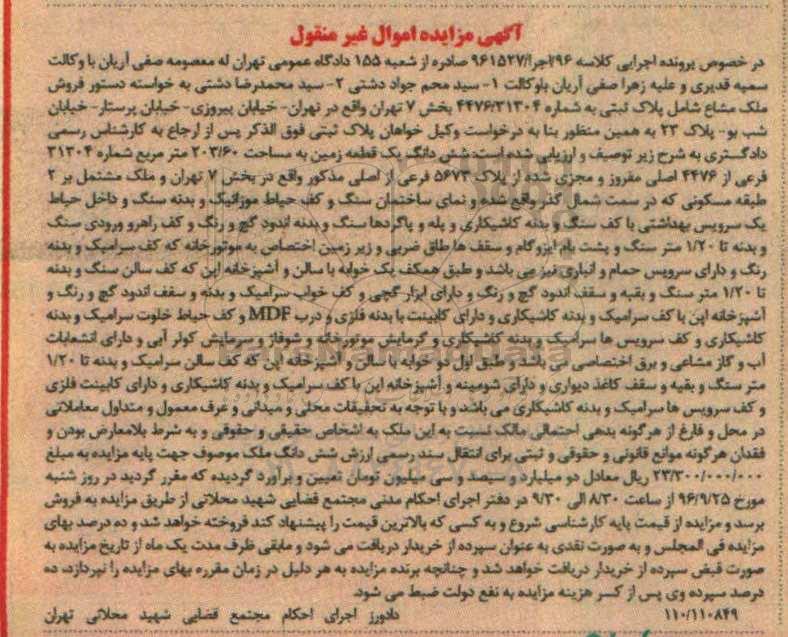 آگهی مزایده اموال غیر منقول
در خصوص پرونده اجرایی کلاسه ۹۶/اجرا/۹۶۱۵۲۷ صادره از شعبه ۱۵۵ دادگاه عمومی تهران له معصومه صفی آریان با وکالت
سمیه قدیری و علیه زهرا صفی آریان باوکالت ۱- سید محم جواد دشتی ۲- سید محمدرضا دشتی به خواسته دستور فروش
ملک مشاع شامل پلاک ثبتی به شماره ۴۴۷۶/۳۱۳۰۴ بخش ۷ تهران واقع در تهران- خیابان پیروزی- خیابان پرستار- خیابان
شب بو- پلاک ۲۳ به همین منظور بنا به درخواست وکیل خواهان پلاک ثبتی فوق الذکر پس از ارجاع به کارشناس رسمی
دادگستری به شرح زیر توصیف و ارزیابی شده است: شش دانگ یک قطعه زمین به مساحت ۲۰۳/۶۰ متر مربع شماره ۳۱۳۰۴
فرعی از ۴۴۷۶ اصلی مفروز و مجزی شده از پلاک ۵۶۷۳ فرعی از اصلی مذکور واقع در بخش ۷ تهران و ملک مشتمل بر ۲
طبقه مسکونی که در سمت شمال گذر واقع شده و نمای ساختمان سنگ و کف حیاط موزائیک و بدنه سنگ و داخل حیاط
یک سرویس بهداشتی با کف سنگ و بدنه کاشیکاری و پله و پاگردها سنگ و بدنه اندود گچ و رنگ و کف راهرو ورودی سنگ
و بدنه تا ۱/۲۰ متر سنگ و پشت بام ایزوگام و سقف ها طاق ضربی و زیر زمین اختصاص به موتورخانه که کف سرامیک و بدنه
رنگ و دارای سرویس حمام و انباری نیز می باشد و طبق همکف یک خوابه با سالن و آشپزخانه اپن که کف سالن سنگ و بدنه
تا ۱/۲۰ متر سنگ و بقیه و سقف اندود گچ و رنگ و دارای ابزار گچی و کف خواب سرامیک و بدنه و سقف اندود گچ و رنگ و
آشپزخانه اپن با کف سرامیک و بدنه کاشیکاری و دارای کابینت با بدنه فلزی و درب MDF و کف حیاط خلوت سرامیک و بدنه
کاشیکاری و کف سرویس ها سرامیک و بدنه کاشیکاری و گرمایش موتورخانه و شوفاژ و سرمایش کولر آبی و دارای انشعابات
آب و گاز مشاعی و برق اختصاصی می باشد و طبق اول دو خوابه با سالن و آشپزخانه اپن که کف سالن سرامیک و بدنه تا ۱/۲۰
متر سنگ و بقیه و سقف کاغذ دیواری و دارای شومینه و آشپزخانه اپن با کف سرامیک و بدنه کاشیکاری و دارای کابینت فلزی
و کف سرویس ها سرامیک و بدنه کاشیکاری می باشد و با توجه به تحقیقات محلی و میدانی و عرف معمول و متداول معاملاتی
در محل و فارغ از هرگونه بدهی احتمالی مالک نسبت به این ملک به اشخاص حقیقی و حقوقی و به شرط بلامعارض بودن و
فقدان هرگونه موانع قانونی و حقوقی و ثبتی برای انتقال سند رسمی ارزش شش دانگ ملک موصوف جهت پایه مزایده به مبلغ
۲۳/۳۰۰/۰۰۰/۰۰۰ ریال معادل دو میلیارد و سیصد و سی میلیون تومان تعیین و برآورد گردیده که مقرر گردید در روز شنبه
مورخ ۹۶/۹/۲۵ از ساعت ۸/۳۰ الی ۹/۳۰ در دفتر اجرای احکام مدنی مجتمع قضایی شهید محلاتی از طریق مزایده به فروش
برسد و مزایده از قیمت پایه کارشناسی شروع و به کسی که بالاترین قیمت را پیشنهاد کند فروخته خواهد شد و ده درصد بهای
مزایده فی المجلس و به صورت نقدی به عنوان سپرده از خریدار دریافت می شود و مابقی ظرف مدت یک ماه از تاریخ مزایده به
صورت قبض سپرده از خریدار دریافت خواهد شد و چنانچه برنده مزایده به هر دلیل در زمان مقرره بهای مزایده را نپردازد، ده
درصد سپرده وی پس از کسر هزینه مزایده به نفع دولت ضبط می شود.
۱۱۰/۱۱۰۸۴۹ دادورز اجرای احکام مجتمع قضایی شهید محلاتی تهران